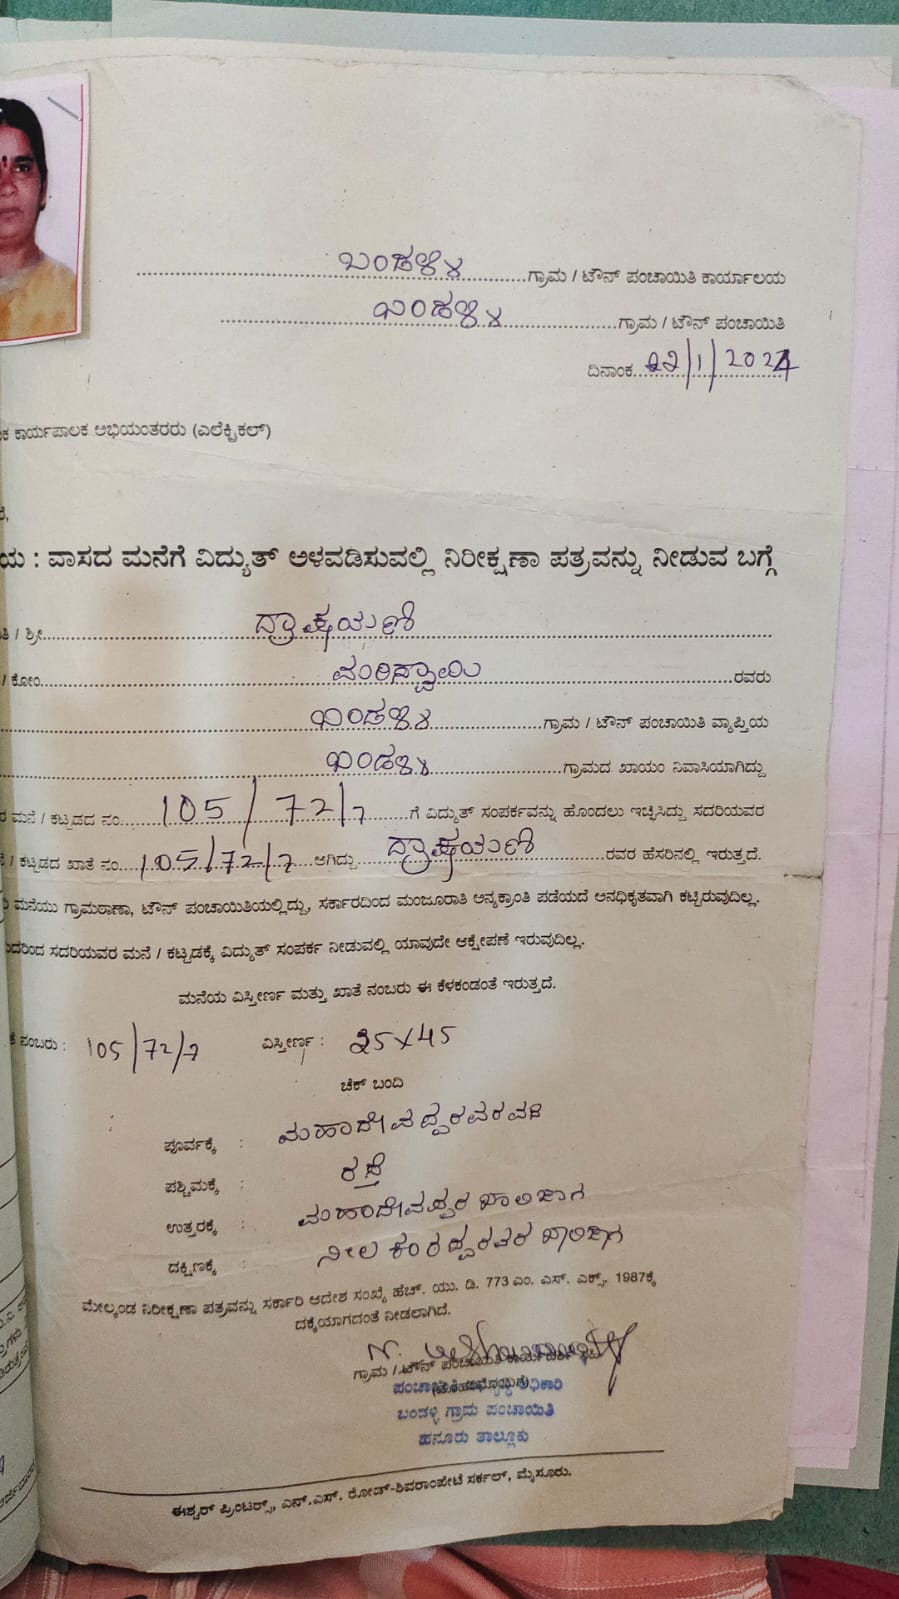 ಬಂಡಳ್ಳಿ ಗ್ರಾಮ / ಟೌನ್ ಪಂಚಾಯಿತಿ ಕಾರ್ಯಾಲಯ
ಬಂಡಳ್ಳಿ ಗ್ರಾಮ / ಟೌನ್ ಪಂಚಾಯಿತಿ
ದಿನಾಂಕ 22/1/2024
ಕ ಕಾರ್ಯಪಾಲಕ ಅಭಿಯಂತರರು (ಎಲೆಕ್ಟ್ರಿಕಲ್)
ಯ : ವಾಸದ ಮನೆಗೆ ವಿದ್ಯುತ್ ಅಳವಡಿಸುವಲ್ಲಿ ನಿರೀಕ್ಷಣಾ ಪತ್ರವನ್ನು ನೀಡುವ ಬಗ್ಗೆ
ತಿ / ಶ್ರೀ. ದ್ರಾಕ್ಷಯಣಿ
/ ಕೋಂ. ಮರಿಸ್ವಾಮಿ ರವರು
ಬಂಡಳ್ಳಿ ಗ್ರಾಮ / ಟೌನ್ ಪಂಚಾಯಿತಿ ವ್ಯಾಪ್ತಿಯ
ಬಂಡಳ್ಳಿ ಗ್ರಾಮದ ಖಾಯಂ ನಿವಾಸಿಯಾಗಿದ್ದು
ರ ಮನೆ / ಕಟ್ಟಡದ ನಂ. 105/72/7 ಗೆ ವಿದ್ಯುತ್ ಸಂಪರ್ಕವನ್ನು ಹೊಂದಲು ಇಚ್ಛಿಸಿದ್ದು ಸದರಿಯವರ
/ ಕಟ್ಟಡದ ಖಾತೆ ನಂ. 105/72/7 ಆಗಿದ್ದು ದ್ರಾಕ್ಷಯಣಿ ರವರ ಹೆಸರಿನಲ್ಲಿ ಇರುತ್ತದೆ.
ಮನೆಯು ಗ್ರಾಮಠಾಣಾ, ಟೌನ್ ಪಂಚಾಯಿತಿಯಲ್ಲಿದ್ದು, ಸರ್ಕಾರದಿಂದ ಮಂಜೂರಾತಿ ಅನ್ಯಕ್ರಾಂತಿ ಪಡೆಯದೆ ಅನಧಿಕೃತವಾಗಿ ಕಟ್ಟಿರುವುದಿಲ್ಲ.
ುದರಿಂದ ಸದರಿಯವರ ಮನೆ / ಕಟ್ಟಡಕ್ಕೆ ವಿದ್ಯುತ್ ಸಂಪರ್ಕ ನೀಡುವಲ್ಲಿ ಯಾವುದೇ ಆಕ್ಷೇಪಣೆ ಇರುವುದಿಲ್ಲ.
ಮನೆಯ ವಿಸ್ತೀರ್ಣ ಮತ್ತು ಖಾತೆ ನಂಬರು ಈ ಕೆಳಕಂಡಂತೆ ಇರುತ್ತದೆ.
ತೆ ನಂಬರು : 105/72/7 ವಿಸ್ತೀರ್ಣ : 25x45
ಚೆಕ್ ಬಂದಿ
ಪೂರ್ವಕ್ಕೆ : ಮಹಾದೇವಪ್ಪರವರ
ಪಶ್ಚಿಮಕ್ಕೆ : ರಸ್ತೆ
ಉತ್ತರಕ್ಕೆ : ಮಹಾದೇವಪ್ಪರ ಖಾಲಿಜಾಗ
ದಕ್ಷಿಣಕ್ಕೆ : ನೀಲಕಂಠಪ್ಪರವರ ಖಾಲಿಜಾಗ
ಮೇಲ್ಕಂಡ ನಿರೀಕ್ಷಣಾ ಪತ್ರವನ್ನು ಸರ್ಕಾರಿ ಆದೇಶ ಸಂಖ್ಯೆ ಹೆಚ್. ಯು. ಡಿ. 773 ಎಂ. ಎಸ್. ಎಕ್ಸ್. 1987ಕ್ಕೆ
ದಕ್ಕೆಯಾಗದಂತೆ ನೀಡಲಾಗಿದೆ.
ಗ್ರಾಮ / ಟೌನ್ ಪಂಚಾಯಿತಿ ಕಾರ್ಯದರ್ಶಿ
ಬಂಡಳ್ಳಿ ಗ್ರಾಮ ಪಂಚಾಯಿತಿ
ಹನೂರು ತಾಲ್ಲೂಕು
ಈಶ್ವರ್ ಪ್ರಿಂಟರ್ಸ್, ಎನ್.ಎಸ್. ರೋಡ್-ಶಿವರಾಂಪೇಟೆ ಸರ್ಕಲ್, ಮೈಸೂರು.